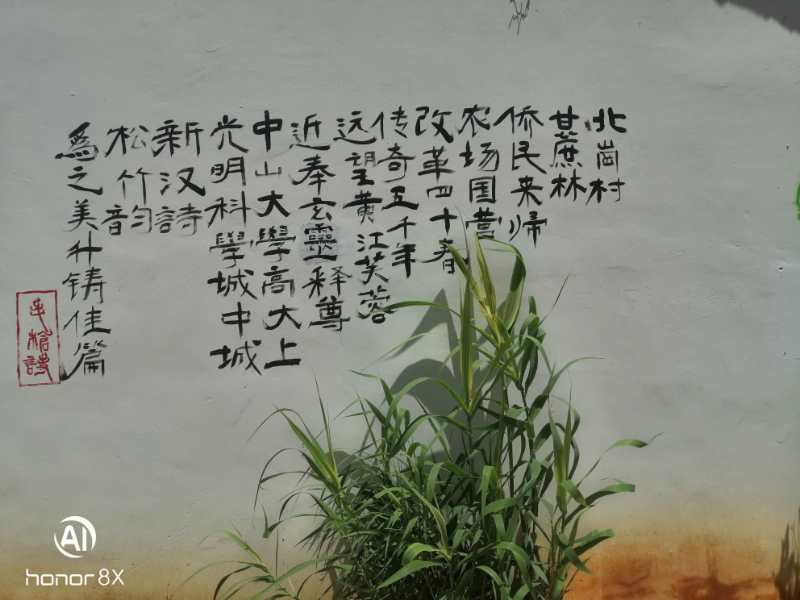 北岗村
甘蔗林
侨民来归
农场国营
改革四十春
传奇五千年
远望黄江芙蓉
近奉玄靈释尊
中山大學高大上
光明科學城中城
新汉詩
松竹韵
爲之美升铸佳篇
AI
honor 8X